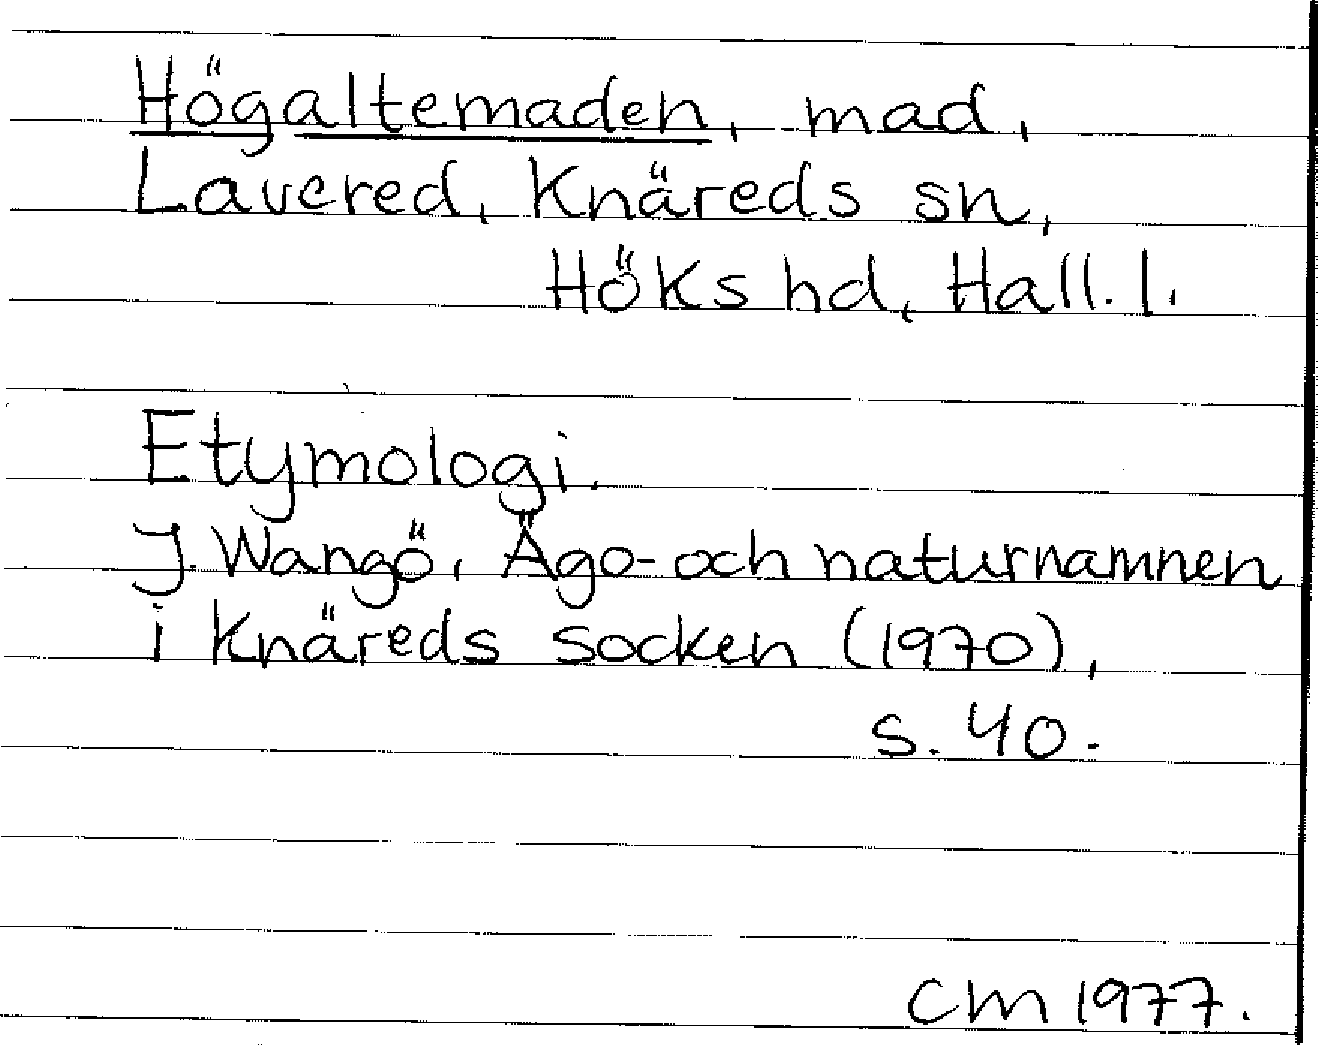 Högaltemaden, mad,
Lavered, Knäreds sn,
Höks hd, Hall. l.
Etymologi.
J. Wangö, Ägo- och naturnamnen
i Knäreds socken (1970),
s. 40.
CM 1977.